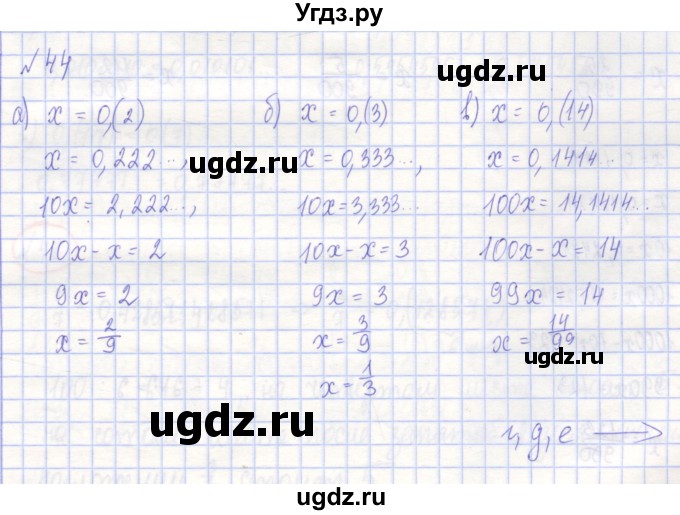 Угдз.ру
№ 44
ugdz.ru
а) x = 0,(2)
x = 0,222...,
10x = 2,222...,
10x - x = 2
9x = 2
x = 2/9
б) x = 0,(3)
x = 0,333...,
10x = 3,333...
10x - x = 3
9x = 3
x = 3/9
x = 1/3
в) x = 0,(14)
x = 0,1414...
100x = 14,1414...
100x - x = 14
99x = 14
x = 14/99
ugdz.ru
ugdz.ru
ugdz.ru
ugdz.ru
г, д, е →
ugdz.ru
ugdz.ru